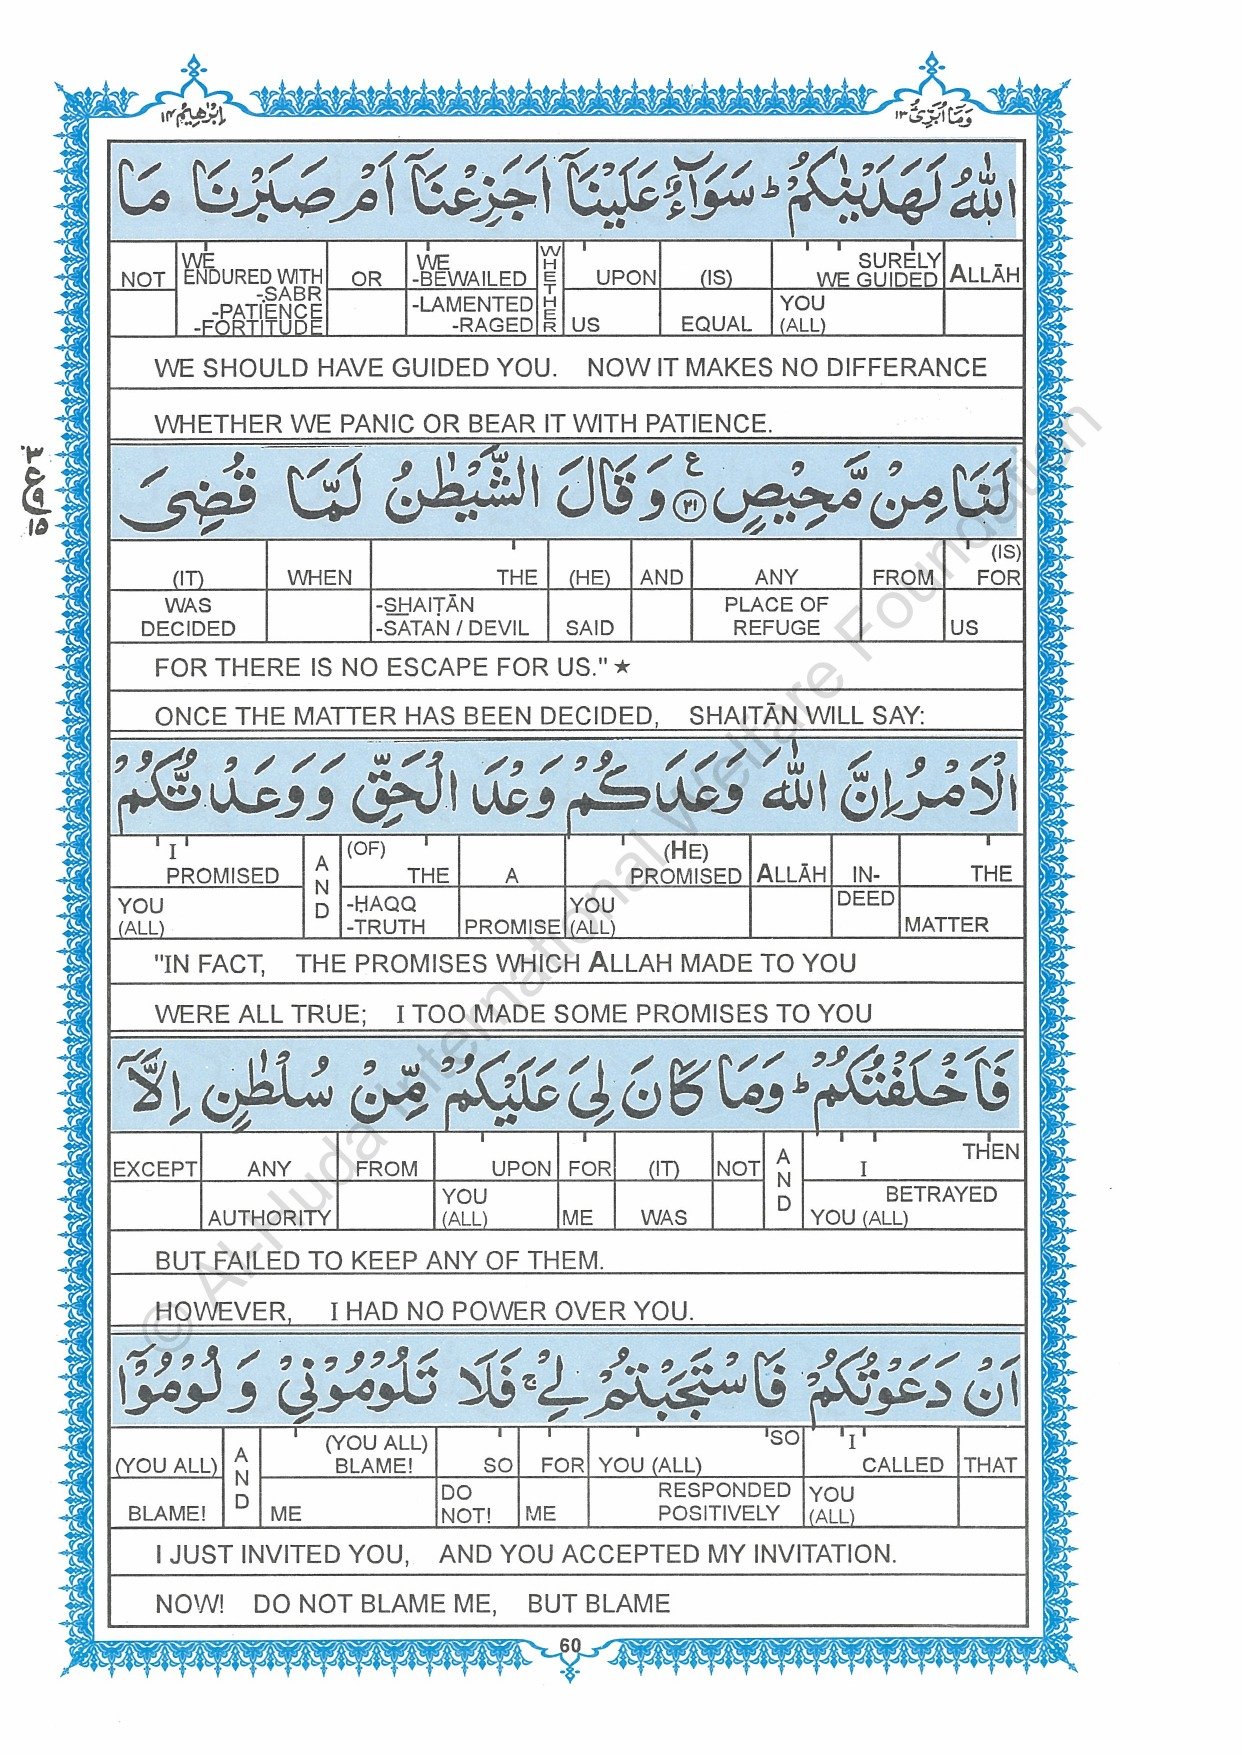 وَمَا اُبَرِّئُ ١٣
اِبْرٰهِيْم ١٤
اللّٰهُ لَهَدَيْنٰكُمْ ؕ سَوَآءٌ عَلَيْنَاۤ اَجَزِعْنَاۤ اَمْ صَبَرْنَا مَا
NOT WE ENDURED WITH -SABR -PATIENCE -FORTITUDE OR WE -BEWAILED -LAMENTED -RAGED WHETHER UPON US (IS) EQUAL SURELY WE GUIDED YOU (ALL) ALLĀH
WE SHOULD HAVE GUIDED YOU. NOW IT MAKES NO DIFFERANCE
WHETHER WE PANIC OR BEAR IT WITH PATIENCE.
لَنَا مِنْ مَّحِيْصٍ ﴿٢١﴾ ع وَقَالَ الشَّيْطٰنُ لَمَّا قُضِىَ
(IT) WAS DECIDED WHEN THE -SHAIṬĀN -SATAN / DEVIL (HE) SAID AND ANY PLACE OF REFUGE FROM (IS) FOR US
FOR THERE IS NO ESCAPE FOR US." ★
ONCE THE MATTER HAS BEEN DECIDED, SHAITĀN WILL SAY:
الْاَمْرُ اِنَّ اللّٰهَ وَعَدَكُمْ وَعْدَ الْحَقِّ وَوَعَدْتُّكُمْ
I PROMISED YOU (ALL) AND (OF) THE -ḤAQQ -TRUTH A PROMISE (HE) PROMISED YOU (ALL) ALLĀH IN-DEED THE MATTER
"IN FACT, THE PROMISES WHICH ALLAH MADE TO YOU
WERE ALL TRUE; I TOO MADE SOME PROMISES TO YOU
فَاَخْلَفْتُكُمْ ؕ وَمَا كَانَ لِىَ عَلَيْكُمْ مِّنْ سُلْطٰنٍ اِلَّاۤ
EXCEPT ANY AUTHORITY FROM UPON YOU (ALL) FOR ME (IT) WAS NOT AND THEN I BETRAYED YOU (ALL)
BUT FAILED TO KEEP ANY OF THEM.
HOWEVER, I HAD NO POWER OVER YOU.
اَنْ دَعَوْتُكُمْ فَاسْتَجَبْتُمْ لِىْ ۚ فَلَا تَلُوْمُوْنِىْ وَلُوْمُوْۤا
(YOU ALL) BLAME! AND (YOU ALL) BLAME! ME SO DO NOT! FOR ME SO YOU (ALL) RESPONDED POSITIVELY I CALLED YOU (ALL) THAT
I JUST INVITED YOU, AND YOU ACCEPTED MY INVITATION.
NOW! DO NOT BLAME ME, BUT BLAME
60
© Al-Huda International Welfare Foundation